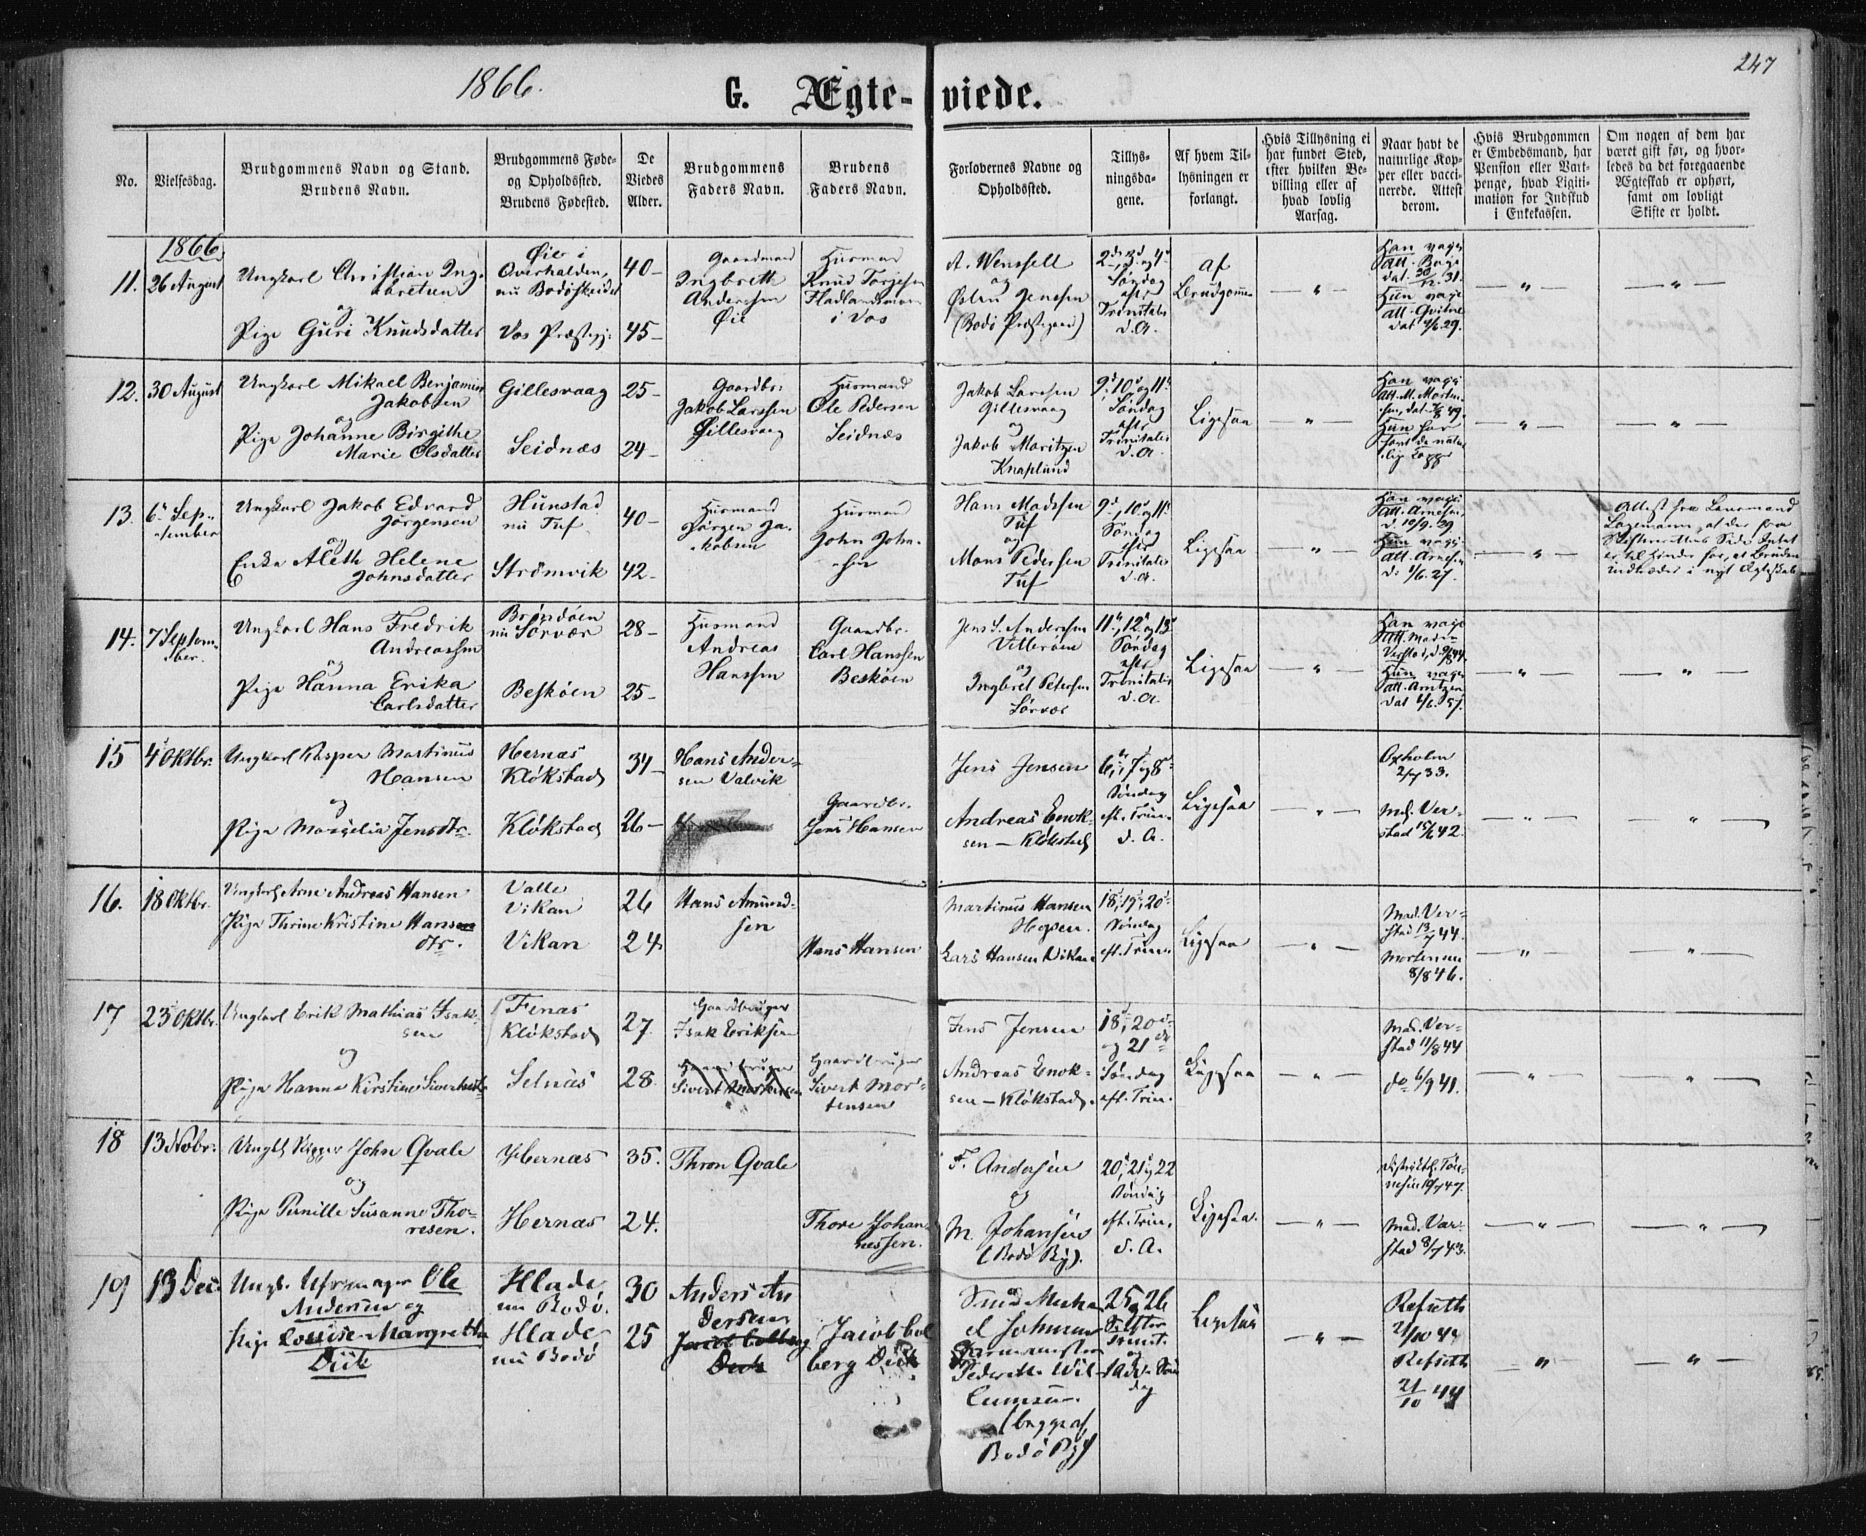 1866.
G. Ægte-viede.
247
No.
Vielsesdag.
Brudgommens Navn og Stand.
Brudens Navn.
Brudgommens Føde-
og Opholdssted.
Brudens Fødested.
De
Viedes
Alder.
Brudgommens
Faders Navn.
Brudens
Faders Navn.
Forlovernes Navne og
Opholdssted.
Tillys-
ningsda-
gene.
Af hvem Til-
lysningen er
forlangt.
Hvis Tillysning ei
har fundet Sted,
efter hvilken Be-
villing eller af
hvad lovlig
Aarsag.
Naar havt de
naturlige Kop-
per eller vacci-
nerede. Attest
derom.
Hvis Brudgommen
er Embedsmand, har
Pension eller Vart-
penge, hvad Legiti-
mation for Indskud
i Enkekassen.
Om nogen af dem har
været gift før, og hvor-
ledes da det foregaaende
Ægteskab er ophørt,
samt om lovligt
Skifte er holdt.
1866
11. 26 August
Ungkarl Christian Ing-
ebretsen
og
Pige Guri Knudsdatter
Øie i
Overhalden,
nu Bodøskeidet
Vos Præstegj:
40-
45-
Gaardmand
Ingbreth
Andersen
Øie
Husmand
Knud Torgesen
i Vos
A. Wenssell
og
Østen Jenssen
(Bodø Præstegaard)
2d, 3d og 4d
Søndag
efter
Trinitatis
d. A.
af
Brudgommen
Han vagi
att.
dat. 30/12. 31.
Hun vagi
att.
dat 4/6. 29.
12. 30 August
Ungkarl Mikael Benjamin
Jakobsen
og
Pige Johanne Birgithe
Marie Olsdatter
Gillesvaag
Seidnæs
25-
24-
Gaardbr:
Jakob Larssen
Gillesvaag
Husmand
Ole Pedersen
Seidnæs
Jakob Larssen
Gillesvaag
og
Jakob Moritzen
Knaplund
9d, 10d og 11d
Søndag
efter
Trinitatis
d. A.
Ligesaa
Han vagi
att. M. Morten-
sen,
Hun har
havt de natur-
lige Kopper
13. 6te Sep-
tember
Ungkarl Jakob Edvard
Jørgensen
og
Enke Aleth Helene
Johnsdatter
Hunstad
nu Tuf
Strømvik
40-
42-
Husmand
Jørgen Ja-
kobsen
Husmand
John John-
sen
Hans Madssen
Tuf
og
Mons Pedersen
Tuf
9d, 10d og 11d
Søndag
efter
Trinitatis
d. A.
Ligesaa
Han vagi
att. Arnesen,
d. 10/9. 39
Hun vagi
att. Arnesen
d. 1/6. 27.
Attest fra Lensmand
Lagemann, at der fra
Skifterettens Side Intet
er til Hinder for, at Bruden
indtræder i nyt Ægteskab
14. 7 Septem-
ber.
Ungkarl Hans Fredrik
Andreassen
og
Pige Hanna Erika
Carlsdatter
Brøndøen
nu Sørvær
Beskøen
28-
25-
Husmand
Andreas
Hanssen
Gaardbr.
Carl Hanssen
Beskøen
Jens S. Anderssen
Vitterøen
og
Ingbret Petersen
Sørvær
11d, 12d og 13d
Søndag
efter
Trinitatis
d. A.
Ligesaa
Han vagi
att. Mad.
Verstad,
Hun vagi
att. Arntzen
dat 6/6. 57.
15 4 Oktbr.
Ungkarl Kasper Martinus
Hansen
og
Pige Marselia Jensdtr.
Hernæs
Kløkstad
Kløkstad
34-
26-
Hans Ander-
sen Valvik
Gaardbr.
Jens Hansen
Jens Jensen
Andreas Enok-
sen - Kløkstad
Søndag
eft. Trin.
d. A.
Ligesaa
Oxholm
2/7 33.
Md. Ver-
stad 15/6 42.
16. 18 Oktbr.
Ungkarl Arne Andreas Hansen
Pige Thrine Kristine Hansen
dtr.
Valle
Vikan
Vikan
26
24.
Hans Amund-
sen
Hans Hansen
Martinus Hansen
Hopen.
Lars Hansen Vikan
18, 19, 20de
Søndag
eft. Trin.
Ligesaa
Mad. Ver-
stad 13/7 44.
Mortensen
8/8 46.
17 25 Oktbr.
Ungkarl Erik Mathias Isak-
sen
og
Pige Hanna Kirstine Sivertsdtr
Fenæs
Kløkstad
Selnæs
27.
28.
Gaardbruger
Isak Eriksen
Gaardbruger
Sivert Mortensen
Gaardbruger
Sivert Mor-
tensen
Jens Jensen
Andreas Enok-
sen - Kløkstad.
18, 20de
og 21de
Søndag
eft. Trin.
Ligesaa
Mad. Ver-
stad 11/8 44
do 6/9 41.
18 13 Novbr.
John Qvale
og
Pige Pernille Susanne Tho-
resen.
Hernæs
Hernæs
35.
24.
Thron Qvale
Thore Johan-
nessen.
F. Andersen
og
M. Johansen
(Bodø By).
20, 21 og 22
Søndag
eft. Trin.
d. A.
Ligesaa.
Mad. Ver-
stad 8/7 43.
19 13 Dec.
Ole
Andersen og
Pige Lovise Margrethe
Diik
Hlade
nu Bodø.
Hlade
nu Bodø
30
25
Anders An
dersen
Jacob Colberg
Diik
Jacob Col
berg Diik
Johnsen
Wil-
(begge af
Bodø By)
25 og 26
Søn
dag
Ligesaa
Refseth
21/10 44